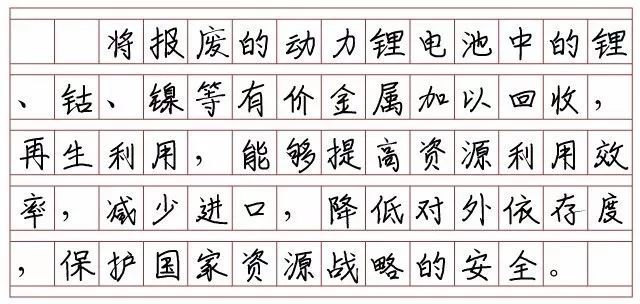 将报废的动力锂电池中的锂
、钴、镍等有价金属加以回收，
再生利用，能够提高资源利用效
率，减少进口，降低对外依存度
，保护国家资源战略的安全。